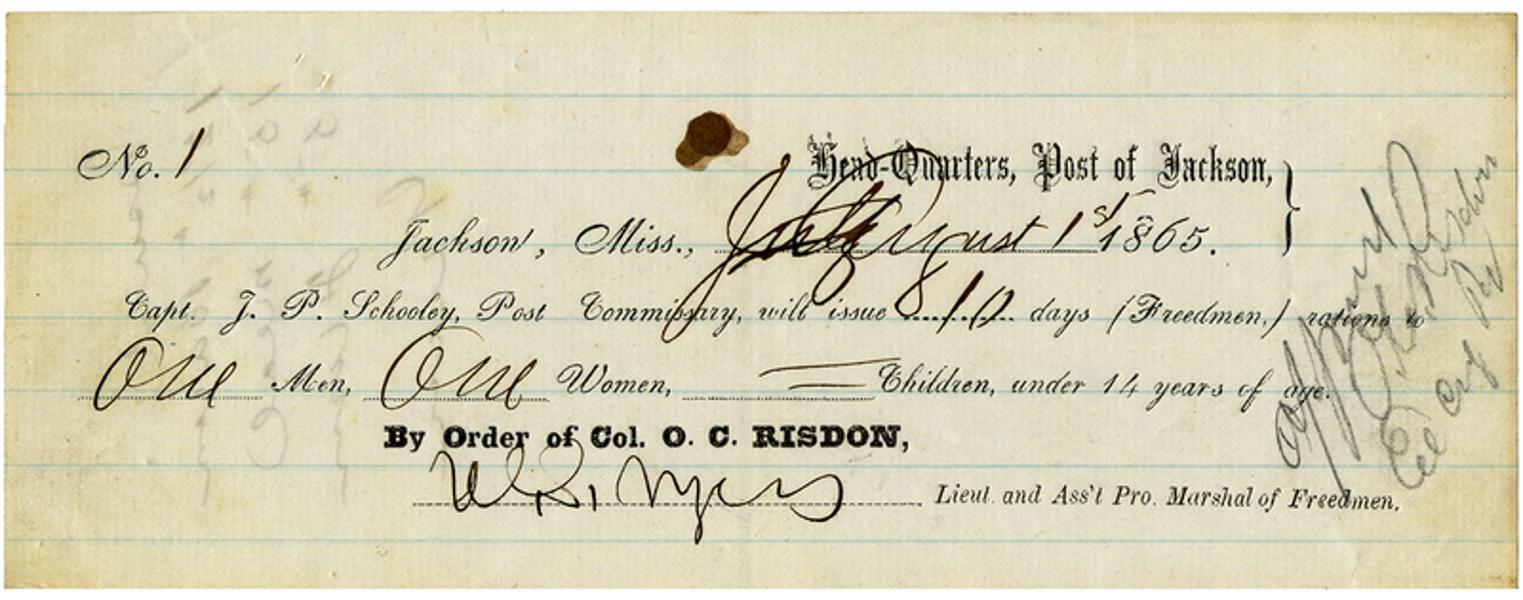 No. 1
Head-Quarters, Post of Jackson,
Jackson, Miss., August 1st 1865.
Capt. J. P. Schooley, Post Commissary, will issue 10 days (Freedmen,) rations to
One Men, One Women, = Children, under 14 years of age.
By Order of Col. O. C. RISDON,
Myers
Lieut. and Ass't Pro. Marshal of Freedmen.
Approved
Risdon